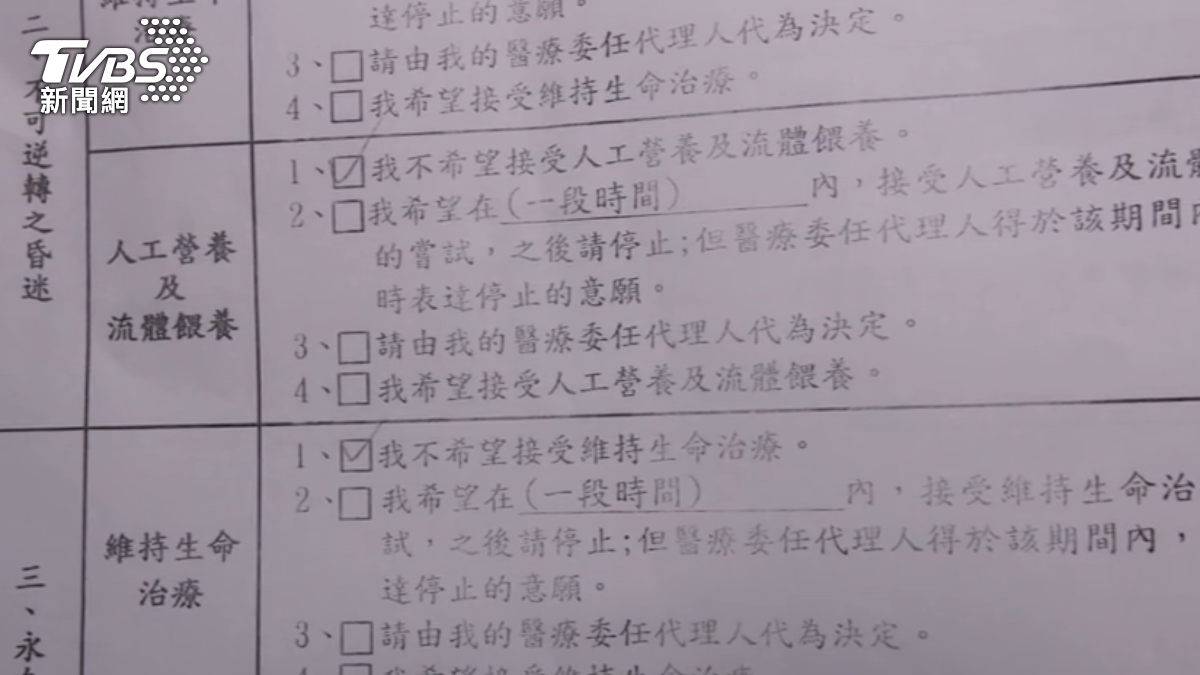 TVBS
新聞網
二、不可逆轉之昏迷
維持生命
治療
達停止的意願。
3、□請由我的醫療委任代理人代為決定。
4、□我希望接受維持生命治療。
人工營養
及
流體餵養
1、☑我不希望接受人工營養及流體餵養。
2、□我希望在(一段時間)內，接受人工營養及流體
的嘗試，之後請停止;但醫療委任代理人得於該期間內
時表達停止的意願。
3、□請由我的醫療委任代理人代為決定。
4、□我希望接受人工營養及流體餵養。
三、永
維持生命
治療
1、☑我不希望接受維持生命治療。
2、□我希望在(一段時間)內，接受維持生命治
試，之後請停止;但醫療委任代理人得於該期間內，
達停止的意願。
3、□請由我的醫療委任代理人代為決定。